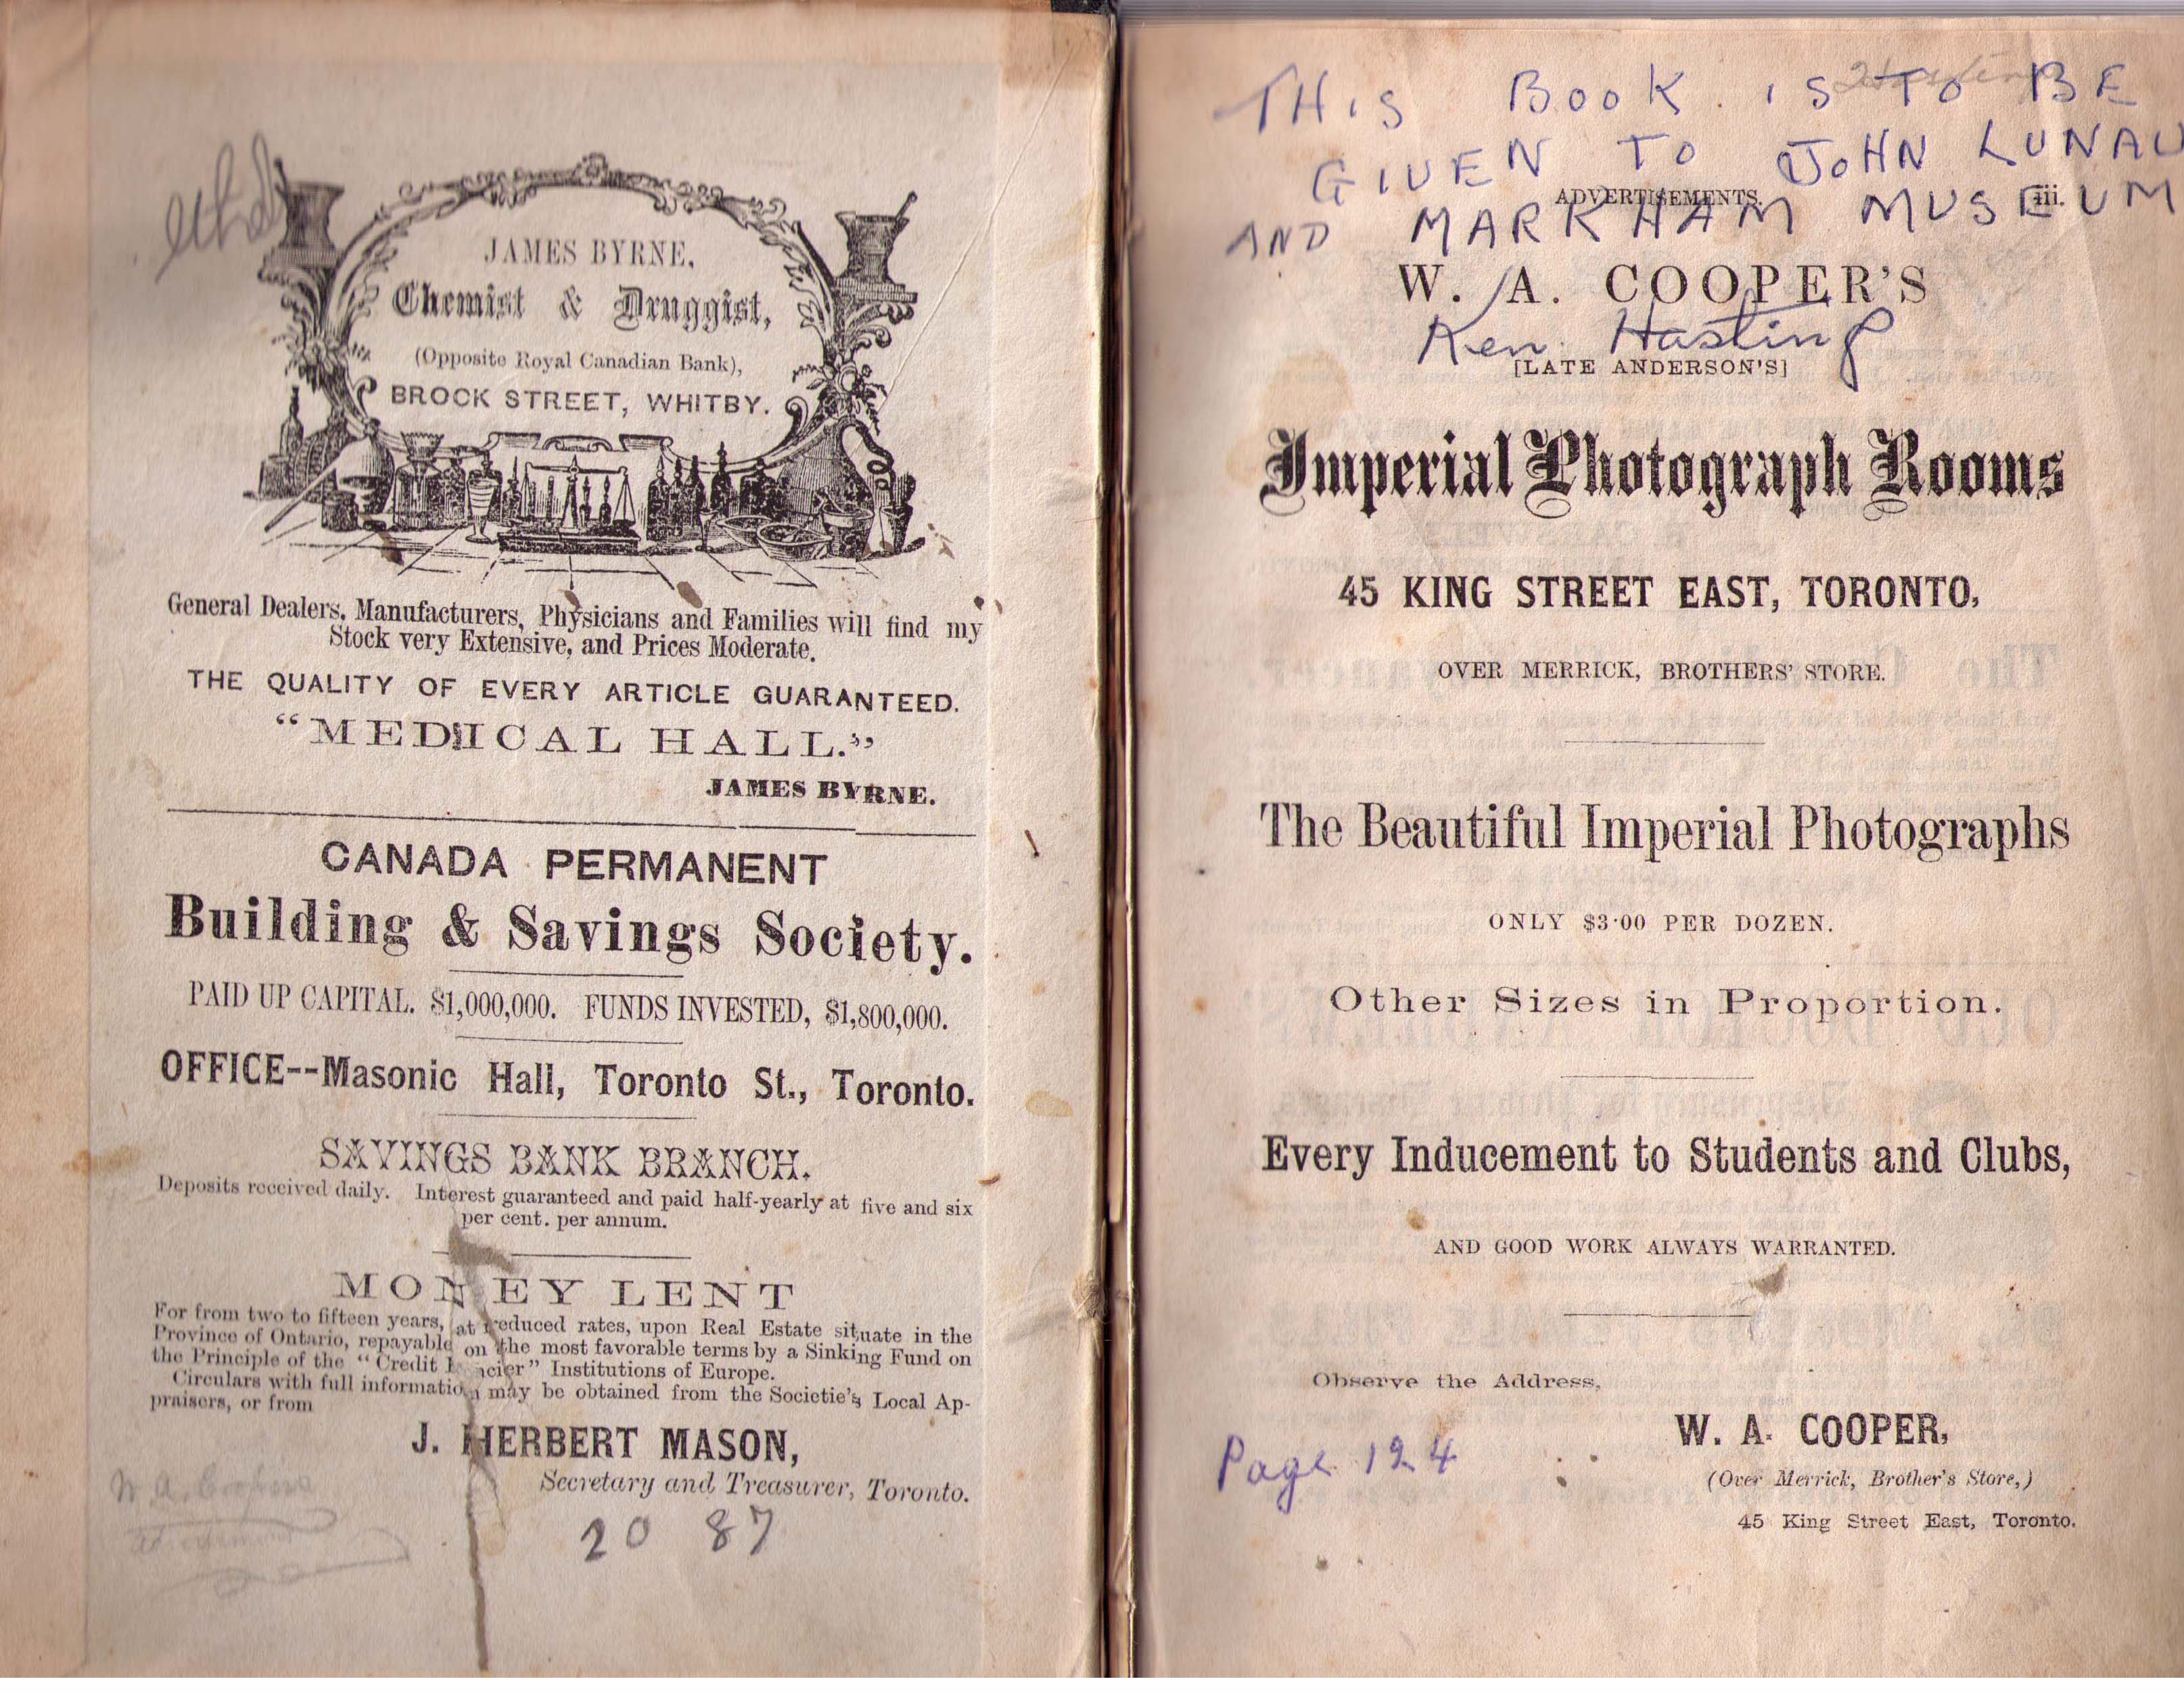 JAMES BYRNE,
Chemist & Druggist,
(Opposite Royal Canadian Bank),
BROCK STREET, WHITBY.
General Dealers, Manufacturers, Physicians and Families will find my
Stock very Extensive, and Prices Moderate.
THE QUALITY OF EVERY ARTICLE GUARANTEED.
"MEDICAL HALL."
JAMES BYRNE.
CANADA PERMANENT
Building & Savings Society.
PAID UP CAPITAL. $1,000,000. FUNDS INVESTED, $1,800,000.
OFFICE--Masonic Hall, Toronto St., Toronto.
SAVINGS BANK BRANCH.
Deposits received daily. Interest guaranteed and paid half-yearly at five and six
per cent. per annum.
MONEY LENT
For from two to fifteen years, at reduced rates, upon Real Estate situate in the
Province of Ontario, repayable on the most favorable terms by a Sinking Fund on
the Principle of the "Credit Institutions of Europe.
Circulars with full information may be obtained from the Societie's Local Ap-
praisers, or from
J. HERBERT MASON,
Secretary and Treasurer, Toronto.
W. A. Coopers
20 87
THIS BOOK IS TO BE
GIVEN TO JOHN LUNAU
ADVERTISEMENTS. iii.
AND MARKHAM MUSEUM
W. A. COOPER'S
Ken Hasting
[LATE ANDERSON'S]
Imperial Photograph Rooms
45 KING STREET EAST, TORONTO,
OVER MERRICK, BROTHERS' STORE.
The Beautiful Imperial Photographs
ONLY $3·00 PER DOZEN.
Other Sizes in Proportion.
Every Inducement to Students and Clubs,
AND GOOD WORK ALWAYS WARRANTED.
Observe the Address,
W. A. COOPER,
Page 124
(Over Merrick, Brother's Store,)
45 King Street East, Toronto.